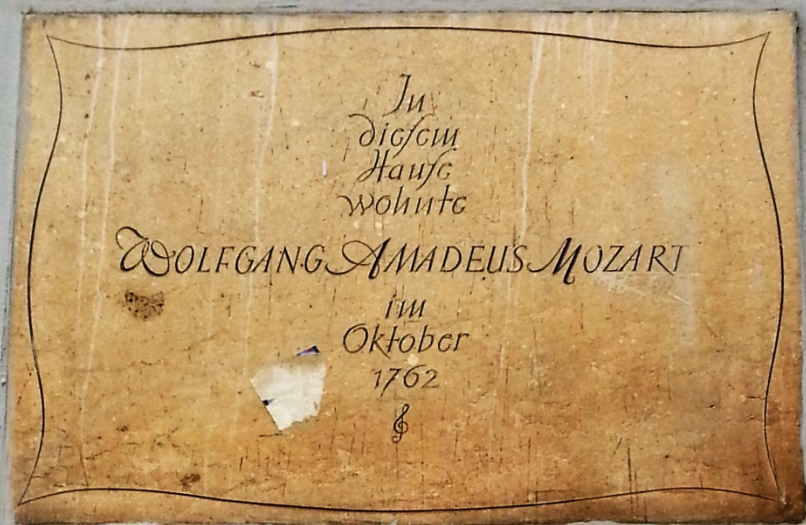 In
dieſem
Hauſe
wohnte
WOLFGANG AMADEUS MOZART
im
Oktober
1762